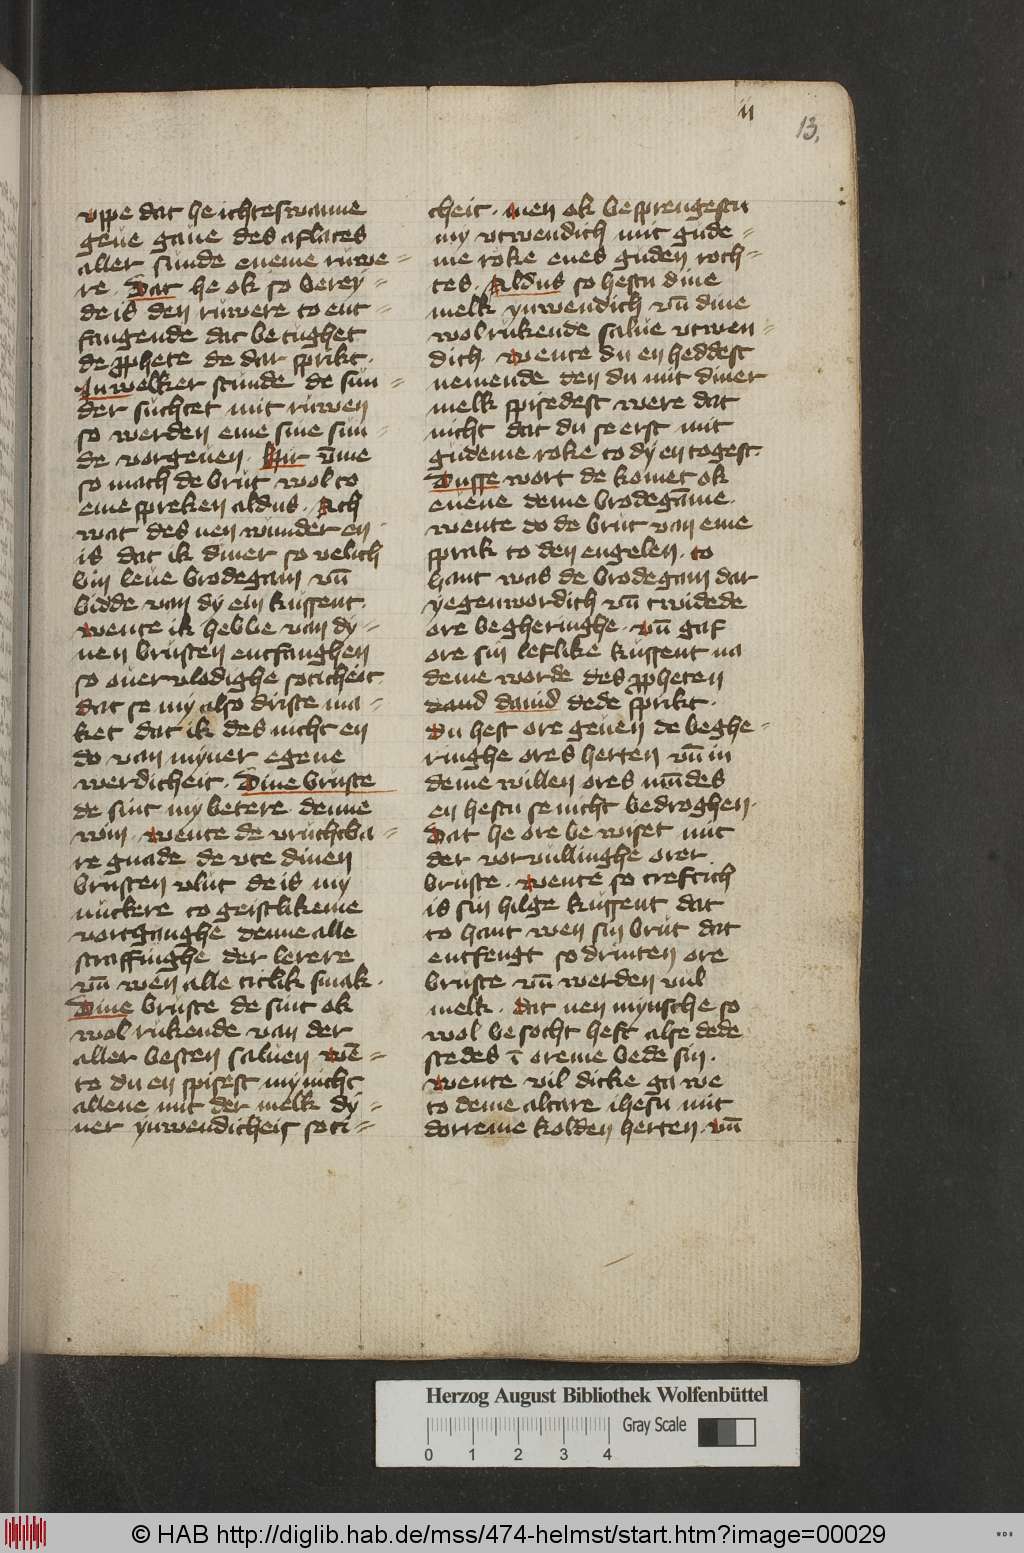 ii
13.
vppe dat he ichteswanne
geue gaue des aflates
aller sunde eneme ruwe=
re. Dat he ok so berey=
de is den ruwere to ent=
fangende dat betughet
de ꝓphete de dar sprikt.
Inwelker stunde de sun=
der suchtet mit ruwen
so werden eme sine sun=
de vorgeuen. Hir vm̄e
so mach de brut wol to
eme spreken aldus. Ach
wat des nen wunder en
is dat ik diner so velich
bin leue brodegam vn̄
bidde van dy ein kussent.
wente ik hebbe van dy=
nen brusten entfanghen
so ouervlodighe soticheit
dat se my also driste ma=
ket dat ik des nicht en
do van myner egene
werdicheit. Dine bruste
de sint my betere denne
win. wente de vruchtba=
re gnade de vte dinen
brusten vlut de is my
nuckere to geistlikeme
vortganghe denne alle
straffinghe der lerere
vn̄ wen alle titlik smak.
Dine bruste de sint ok
wol rukende van der
aller besten saluen wē=
te du en spisest my nicht
allene mit der melk dy=
ner ynwendicheit soti=
cheit. men ok besprengestu
my vtwendich mit gude=
me roke enes guden roch=
tes. Aldus so hestu dine
melk ynwendich vn̄ dine
wolrukende salue vtwen=
dich. wente du en heddest
nemende den du mit diner
melk spisedest were dat
nicht dat du se erst mit
gudeme roke to dy en togest.
Dusse wort de komet ok
euene deme brodegāme.
wente do de brut van eme
sprak to den engelen. to
hant was de brodegam dar
yegenwordich vn̄ twidede
ore begheringhe. vn̄ gaf
ore sin leflike kussent na
deme worde des ꝓpheten
dauid dede sprikt.
du hest ore geuen de beghe=
ringhe ores herten vn̄ in
deme willen ores mūdes
en hestu se nicht bedroghen.
Dat he ore bewiset mit
der vorvullinghe orer
bruste. wente so creftich
is sin hilge kussent dat
to hant wen sin brut dat
entfengt so drinten ore
bruste vn̄ werden vul
melk. dat nen mynsche so
wol besocht heft alse dede
stedes ī oreme bede sin.
wente vil dicke ga we
to deme altare ihesu mit
dorreme kolden herten. vn̄
Herzog August Bibliothek Wolfenbüttel
Gray Scale
0 1 2 3 4
© HAB http://diglib.hab.de/mss/474-helmst/start.htm?image=00029